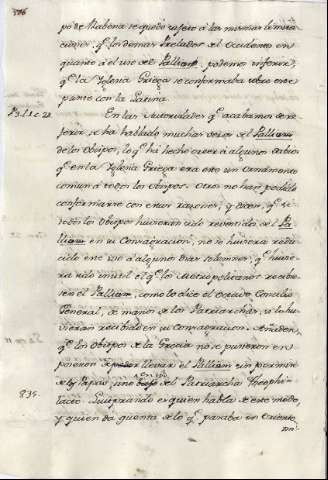 po de Rabena se quedò sujeto à las mismas limita
ciones, q.e los demas Prelados del Occidente en
quanto à el uso de Pallium, podemos inferir,
q.e la Yglesia Griega se conformaba sobre este
punto con la Latina.
P. 3. l. 1. c. 22.
En las Autoridades q.e acabamos de re
ferir, se ha hablado muchas veces del Pallium
de los Obispos, lo q.e ha hecho creer à algunos sabios
q.e en la Yglesia Griega era este un Ornamento
comun à todos los Obispos. Otros no han podido
conformarse con estas razones, y dicen, q.e si
todos los Obispos huvieran sido revestidos del Pa
llium en su Consagracion, no se huviera redu
cido este uso à algunos dias solemnes; q.e huvie
ra sido inutil el q.e los Metropolitanos recibie
sen el Pallium, como lo dice el Octavo Concilio
General, de manos de los Patriarchas, si lo hu
vieran recibido en su Consagracion. Añaden
q.e los Obispos de la Grecia no se pusieron en
posesion de llevar el Pallium sin permiso
de los Papas, sino del Patriarcha Theophi
835.
lacto. Luitprando es quien habla de este modo,
y quien da quenta de lo q.e pasaba en Oriente